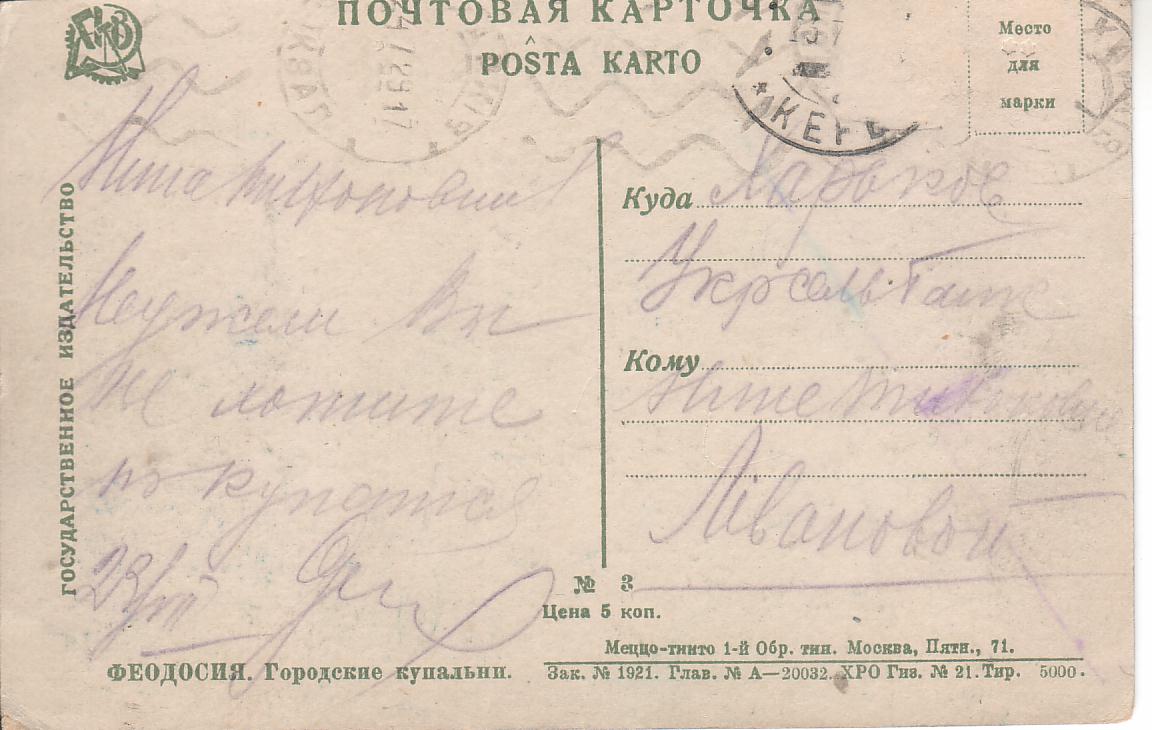 ПОЧТОВАЯ КАРТОЧКА
POŜTA KARTO
АХО
Место
для
марки
КЕР
ГОСУДАРСТВЕННОЕ ИЗДАТЕЛЬСТВО
Нина Тихоновна
Неужели Вы
не хотите
купатся
Куда Харьков
Укрсельбанк
Кому
Нине Тихоновне
Ивановой
№ 3
Цена 5 коп.
Меццо-тинто 1-й Обр. тип. Москва, Пятн., 71.
ФЕОДОСИЯ. Городские купальни.
Зак. № 1921. Глав. № А—20032. ХРО Гиз. № 21. Тир. 5000.